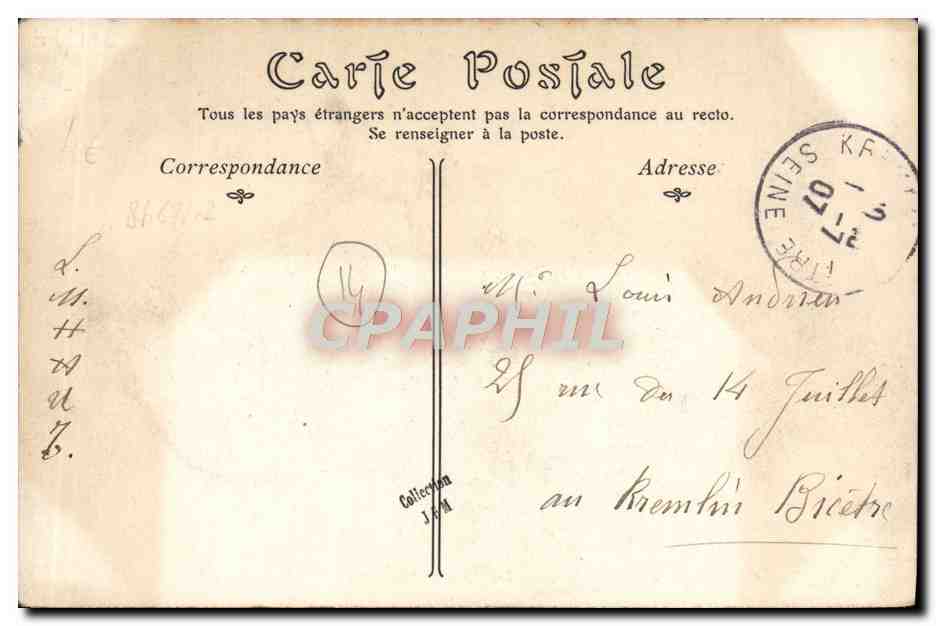 Carte Postale
Tous les pays étrangers n'acceptent pas la correspondance au recto.
Se renseigner à la poste.
Correspondance
Adresse
4€
L.
M.
H
A
U
T.
14
CPAPHIL
SEINE
07
Mr Louis Andrieu
25 rue du 14 Juillet
au Kremlin Bicêtre
Collection
J & M